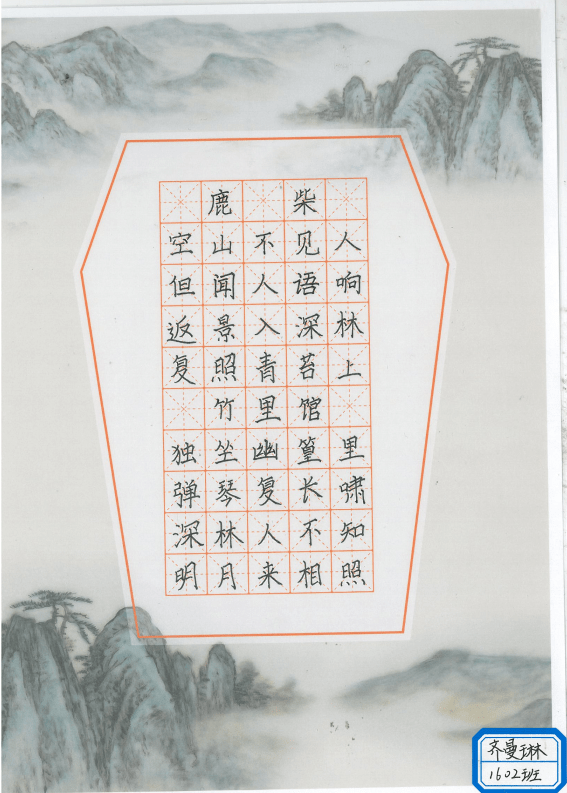 鹿柴
空山不见人
但闻人语响
返景入深林
复照青苔上
竹里馆
独坐幽篁里
弹琴复长啸
深林人不知
明月来相照
齐曼琳
1602班